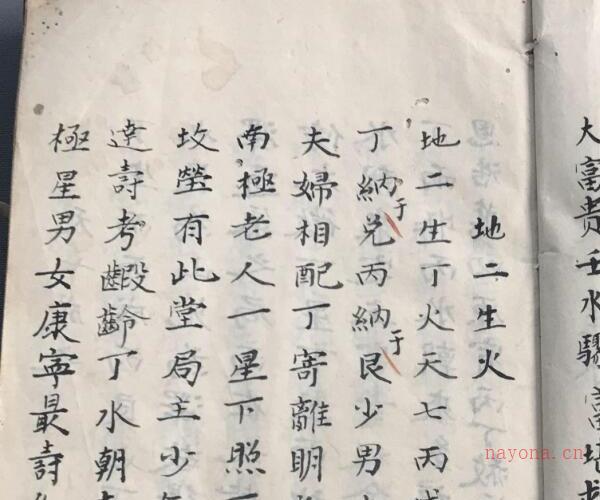 大富貴壬水驟富地
地二生火
地二生丁火天七丙
丁納于兌丙納于艮少男
夫婦相配丁寄離明
南極老人一星下照
坟塋有此堂局主少
達壽考齡丁水朝
極星男女康寧最壽
nayona.cn